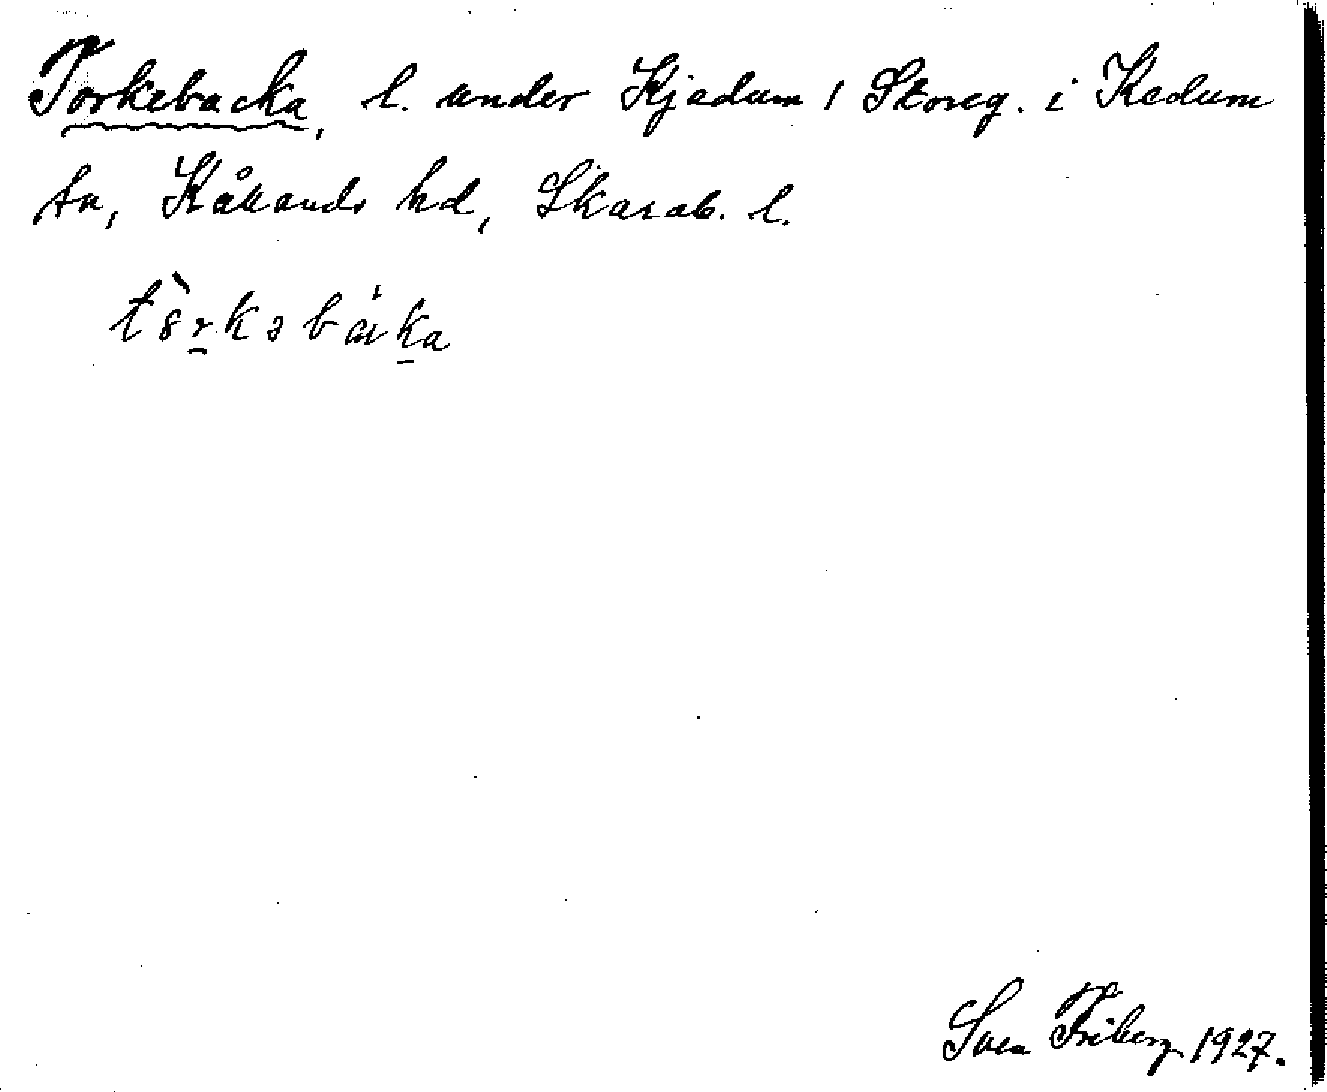 Torkebacka, l. under Kjedum 1 Storeg. i Kedum
sn, Kållands hd, Skarab. l.
Sven Friberg 1927.